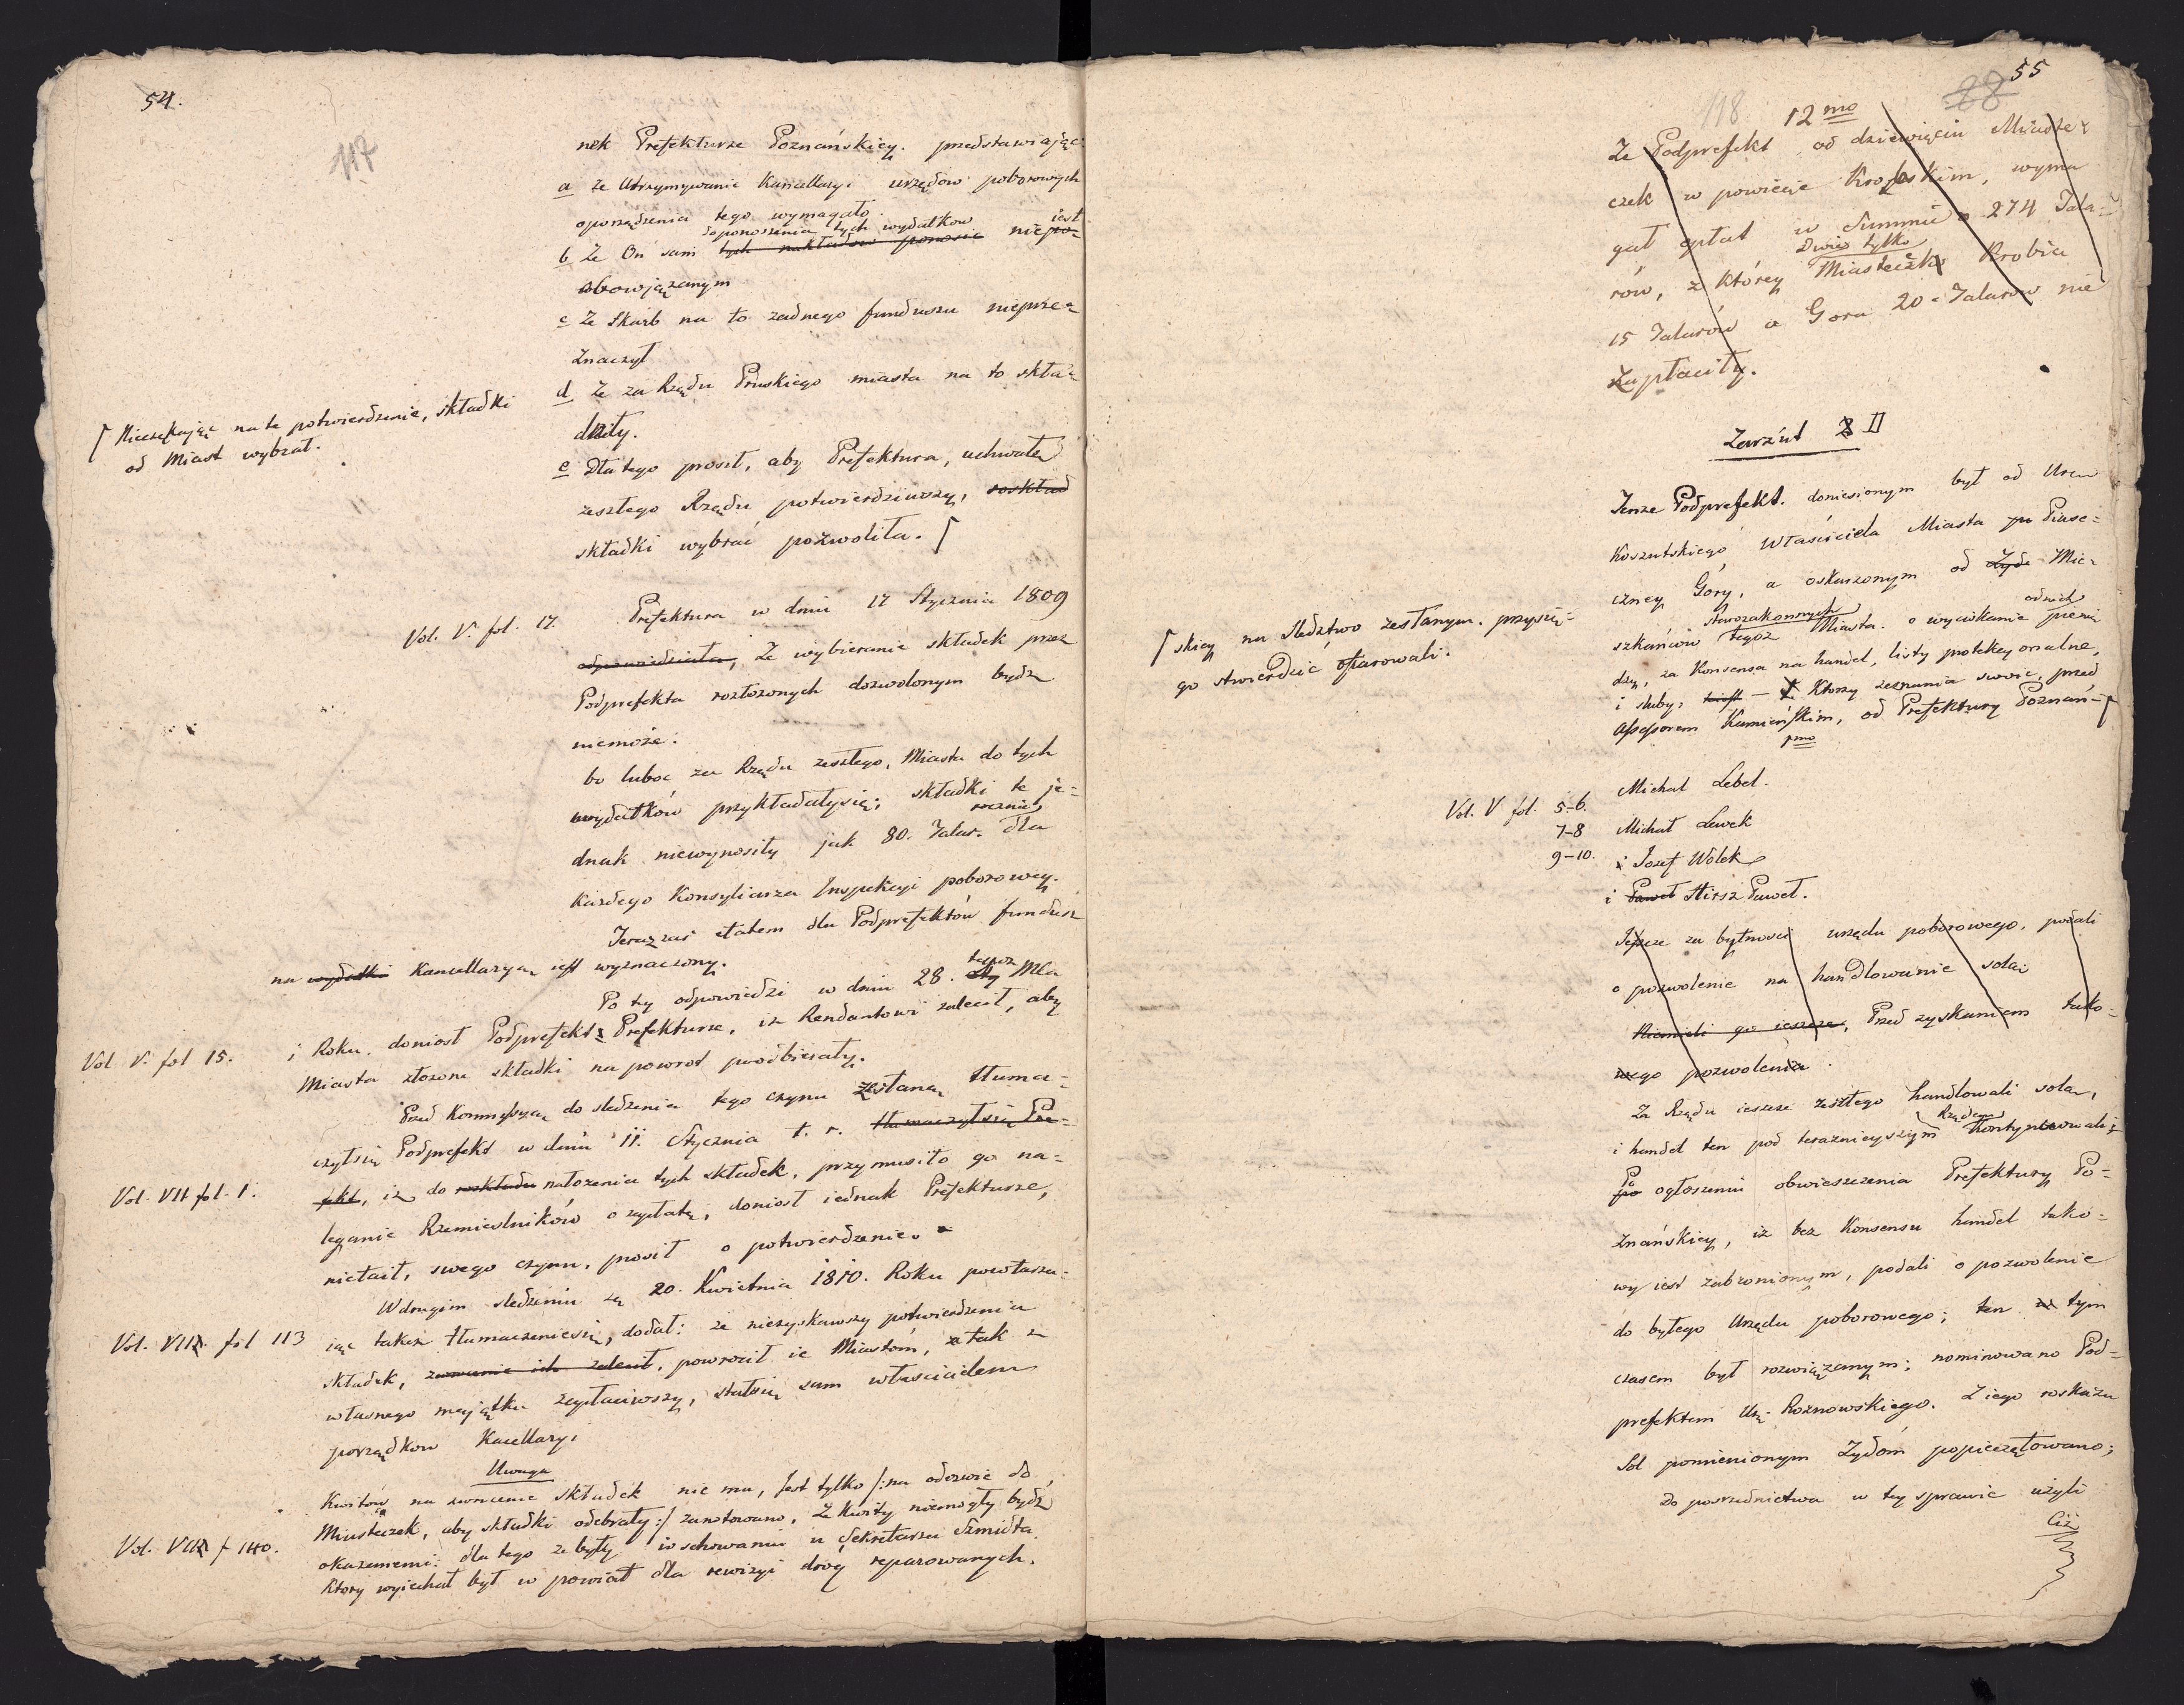 54.
117
nek Prefekturze Poznańskiey. przedstawiając
a że Utrzymywanie Kancellaryi urzędów poborowych
oporządzenia tego wymagało.
do ponoszenia tych wydatkow iest
b Że On sam tych nakładow ponosić nie po-
obowjązanym
c Że Skarb na to żadnego funduszu nieprze-
znaczył
d Że za Rządu Pruskiego miasta na to skła-
dały.
e Dla tego prosił, aby Prefektura, uchwałę
zeszłego Rządu potwierdziwszy, roskład
składki wybrać pozwoliła. ⌈
⌈ Nieczekając na te potwierdzenie, składki
od Miast wybrał.
Vol. V. fol. 17.
Prefektura w dniu 17 Stycznia 1809
odpowiedziała, Że wybieranie składek przez
Podprefekta rozłożonych dozwolonym bydź
niemoże:
bo lubo za Rządu zeszłego, Miasta do tych
wydatków przykładałysię; składki te je-
rocznie
dnak niewynosiły jak 80. Talar. dla
każdego Konsyliarza Inspekcyi poborowey.
Teraz zaś etatem dla Podprefektów fundusz
na wydatki Kancellaryą iest wyznaczony.
Po tey odpowiedzi w dniu 28. tegoż Mca
Vol. V. fol 15.
i Roku. doniosł Podprefekt Prefekturze, iż Rendantowi zalecił, aby
Miasta złożone składki na powrot poodbierały.
Przed Kommissyą do sledzenia tego czynu zesłaną tłuma-
czyłsię Podprefekt w dniu 11. Stycznia t. r. tłumaczył się Pre-
Vol. VII fol. 1.
fekt, iż do roskładu nałożenia tych składek, przymusiło go na-
leganie Rzemieslników o zapłatę, doniosł iednak Prefekturze,
nietaił, swego czynu, prosił o potwierdzenie.
W drugim sledzeniu 20. Kwietnia 1810. Roku powtarza-
Vol. VII. fol 113
iąc takież tłumaczeniesię, dodał: że niezyskawszy potwierdzenia
składek, zwrocenie ich zalecił, powrocił ie Miastom, a tak z
własnego majątku zapłaciwszy, stałsię sam włascicielem
porządkow Kacellaryi
Uwaga
Kwitów na zwrocenie składek nie ma, Jest tylko /: na odezwie do
Miasteczek, aby składki odebrały :/ zanotowano, że kwity niemogły bydź
Vol. VII f 140.
okazanemi: dla tego że były w schowaniu u Sekretarza Szmidta.
ktory wyiechał był w powiat dla rewizyi dróg reparowanych.
55
118
28
12mo
Że Podprefekt od dziewięciu Miaste-
czek w powiecie Krobskim, wyma
gał opłat w Summie 274 Tala-
Dwie tylko
rów, z którey Miasteczka Krobia
15 Talarów a Gora 20 Talarow nie
zapłaciły.
Zarzut 2 II
Tenże Podprefekt. doniesionym był od Urou
Koszutskiego Właściciela Miasta Piase-
czney Góry, a oskarzonym od Żyda Mie-
starozakonnych od nich
szkańców tegoż Miasta. o wyciskanie pienię
dzy, za Konsensa na handel, listy protekcyonalne,
i sluby. Ktorzy zeznania swoie, przed
Assessorem Kamieńskim, od Prefektury Poznań-⌈
⌈ skiey na sledztwo zesłanym. przysię-
gą stwierdzić offiarowali.
1mo
Vol. V fol. 5-6. Michał Lebel.
7-8 Michał Lewek
9-10. i Josef Wolek
i Paweł Hirsz Paweł.
Jeszcze za bytności urzędu poborowego, podali
o pozwolenie na handlowanie solą;
Niemieli go ieszcze, Przed zyskaniem tako-
wego pozwolenia.
Za Rządu ieszcze zeszłego handlowali solą,
Rządem
i handel ten pod terażnieyszym kontynuowali;
Po ogłoszeniu obwieszczenia Prefektury Po-
znańskiey, iż bez Konsensu handel tako-
wy iest zabronionym, podali o pozwolenie
do byłego Urzędu poborowego; ten w tym
czasem był rozwiązanym; nominowano Pod-
prefektem Ur. Roznowskiego. Z iego roskazu
Sol pomienionym Żydom popieczętowano;
Do posrednictwa w tey sprawie użyli
Ciż